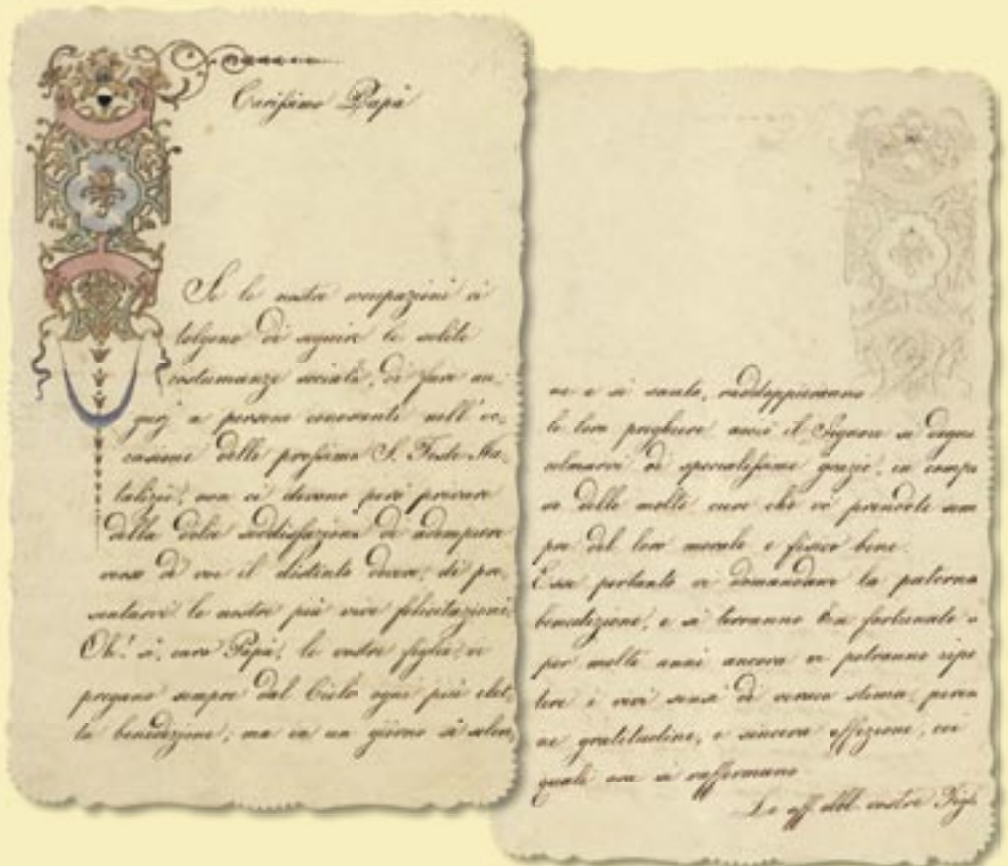 Carissimo Papà
Se le nostre occupazioni ci
tolgono di seguire le solite
costumanze sociali, di fare au-
gurj a persone conoscenti nell'oc-
casione delle prossime S. Feste Na-
talizie, non ci devono però privare
della dolce soddisfazione di adempiere
verso di voi il distinto dovere, di pre-
sentarvi le nostre più vive felicitazioni.
Oh! sì, caro Papà, le vostre figlie vi
pregano sempre dal Cielo ogni più elet-
ta benedizione; ma in un giorno sì solen-
ne e sì santo, raddoppieranno
le loro preghiere acciò il Signore si degni
colmarvi di specialissime grazie, in compen
so delle molte cure che vi prendete sem
pre del loro morale e fisico bene.
Esse pertanto vi domandano la paterna
benedizione, e si terranno ben fortunate se
per molti anni ancora vi potranno ripe
tere i veri sensi di verace stima, peren
ne gratitudine, e sincera affezione, coi
quali ora si raffermano
Le aff. obb. vostre Figlie